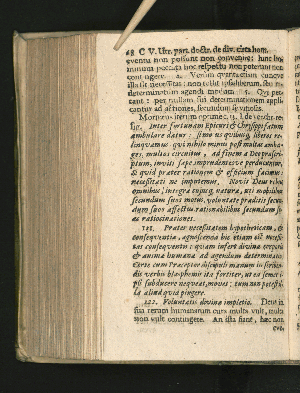 68 C V. Vtr. part. doctr. de div. circa hom.
eventu non possunt non convenire: hinc ho-
minum peccata hoc respectu non poterant non
contingere. 2. Verum quantacun cunque
illa sit necessitas: non tollit
determinatum agendi modum. 18. Qui pec-
cant: per nullam sui determinationem appli-
cantur ad actiones, secundum
Mornæus iterum optime c. 13. de verit.
Inter fortunam Epicuri & Chrysippi fatum
ambulare datur: sumus quidem, liberos re-
linquamus. qui nihilo minus post multas amba-
ges, multos circuitus, ad finem a Deo præscri-
ptum, inviti sæpe imprudentesve perducimur,
& quid præter rationem & effectum facimus:
necessitati ne imputemus. Novit Deus rebus
omnibus, integra cujusque natura, uti: mobilibus
secundum suos motus, voluntate præditis secun-
dum suos affectus rationalibus secundum su-
as ratiocinationes.
Præter necessitatem hypotheticam, &
consequentia, agnoscenda hic etiam est necessi-
tas consequentis: quam infert divina corporis
& animæ humanæ ad agendum determinatio.
Certe cum Præceptor discipuli manum in scriben-
dis verbis blasphemis ita fortiter, ut ea sese eri-
pi subducere nequeat, movet: tum non potest il-
la aliud quid pingere.
122. Voluntatis divinæ impletio. Deus in
sua rerum humanarum cura multa vult, multa
non vult contingere. An ista fiant, hæc non